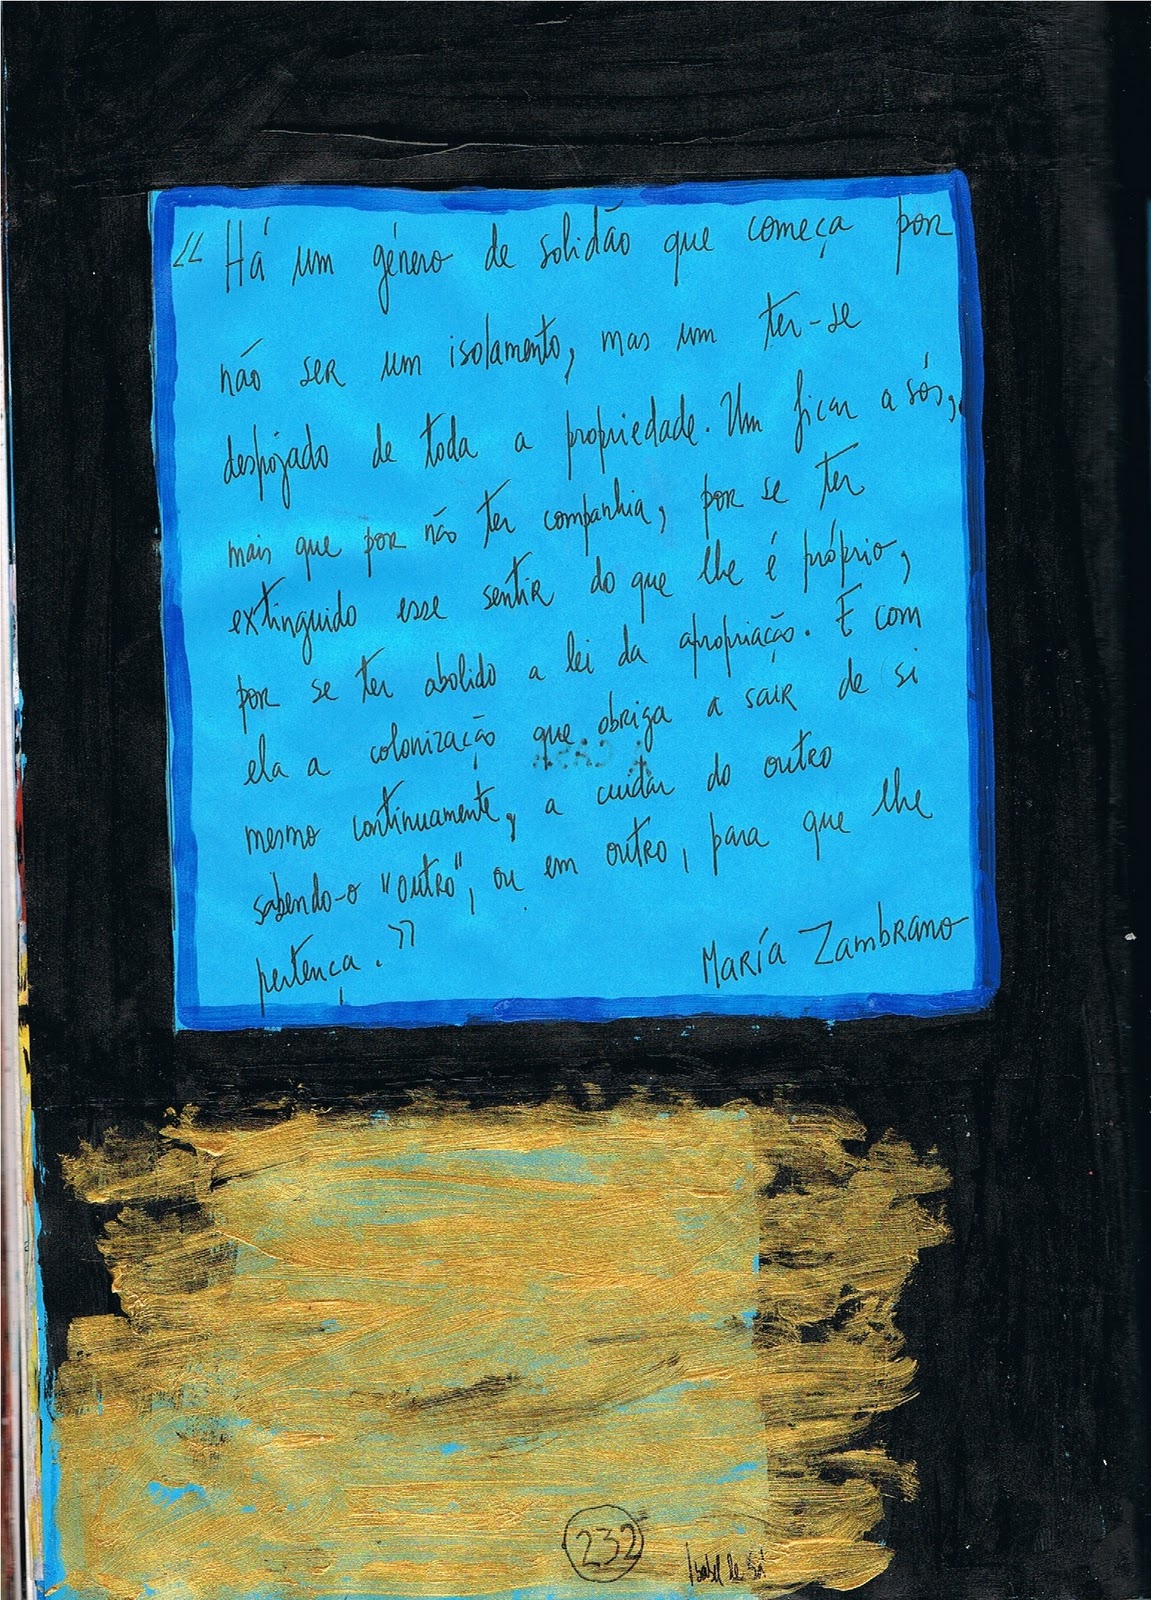 “ Há um género de solidão que começa por
não ser um isolamento, mas um ter-se
despojado de toda a propriedade. Um ficar a sós,
mais que por não ter companhia, por se ter
extinguido esse sentir do que lhe é próprio,
por se ter abolido a lei da apropriação. E com
ela a colonização que obriga a sair de si
mesmo continuamente, a cuidar do outro
sabendo-o "outro", ou em outro, para que lhe
pertença. ”
María Zambrano
232
Isabel de Sá